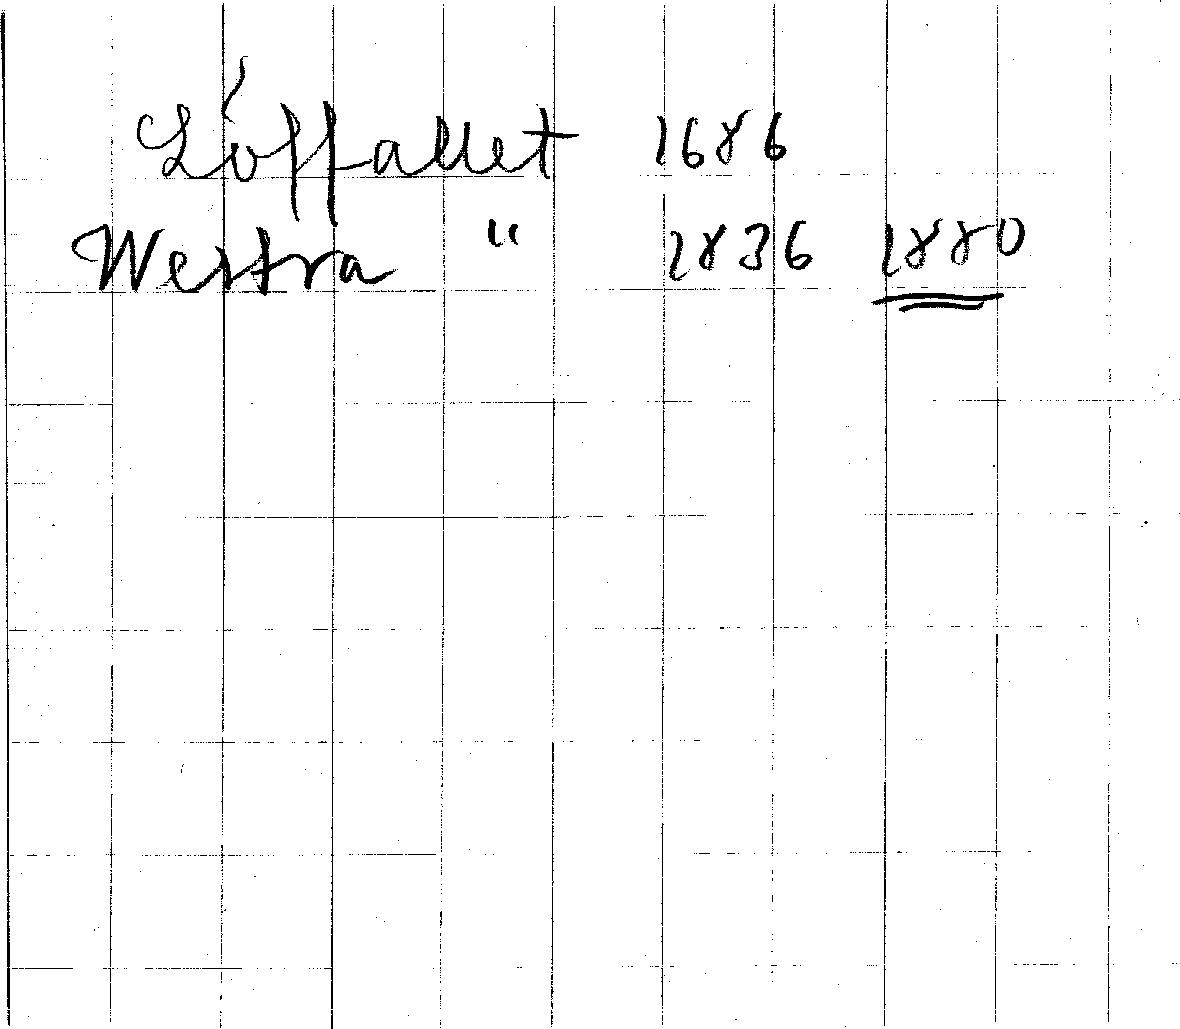 Löffallet 1686
Westra " 1836 1880